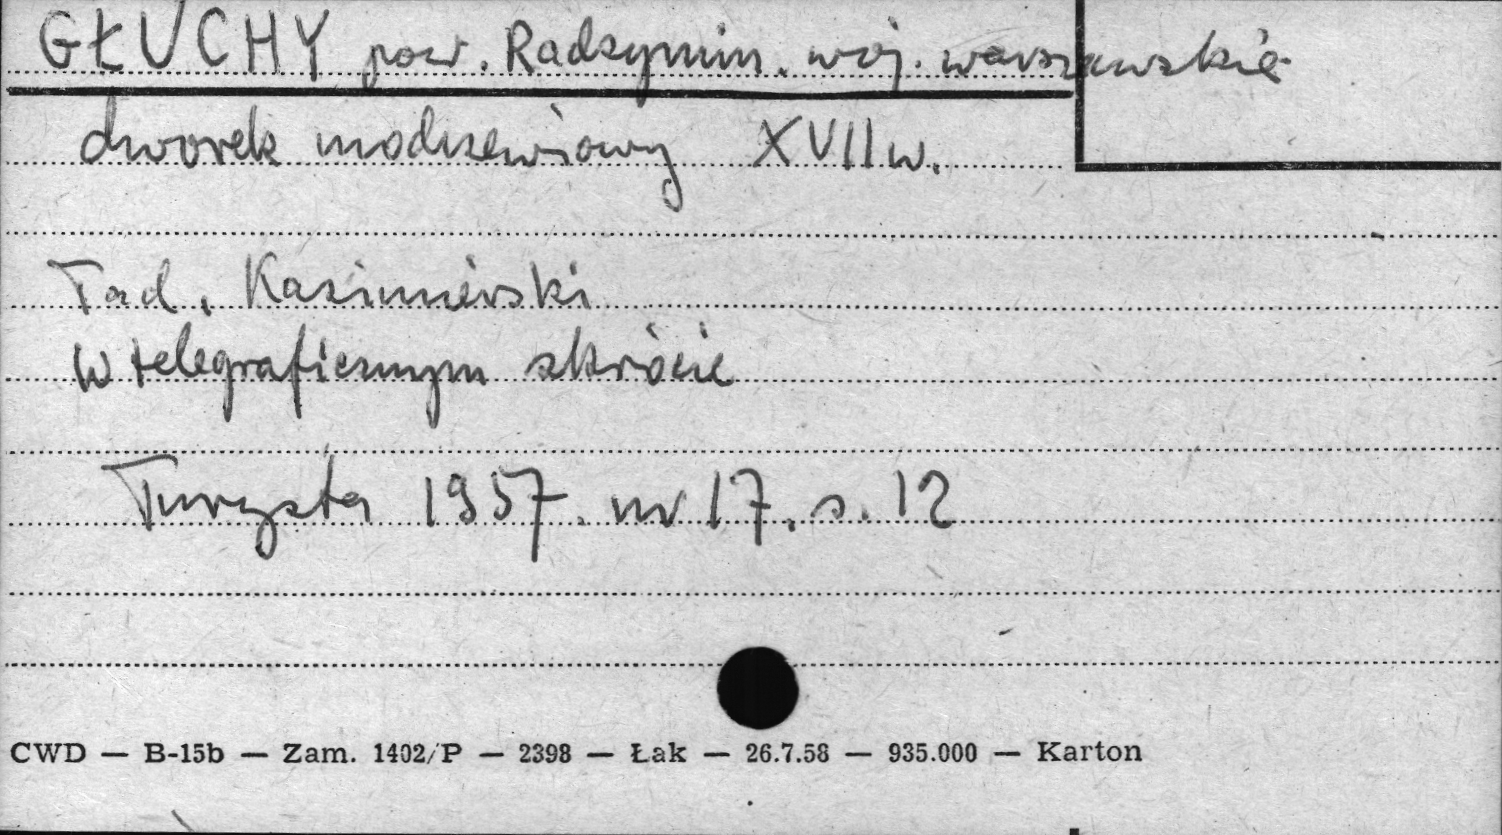 GŁUCHY pow. Radzymin. woj. warszawskie
dworek modrzewiowy XVII w.
Tad. Kazimierski
W telegraficznym skrócie
Turysta 1957. nr 17. s. 12
CWD — B-15b — Zam. 1402/P — 2398 — Łak — 26.7.58 — 935.000 — Karton